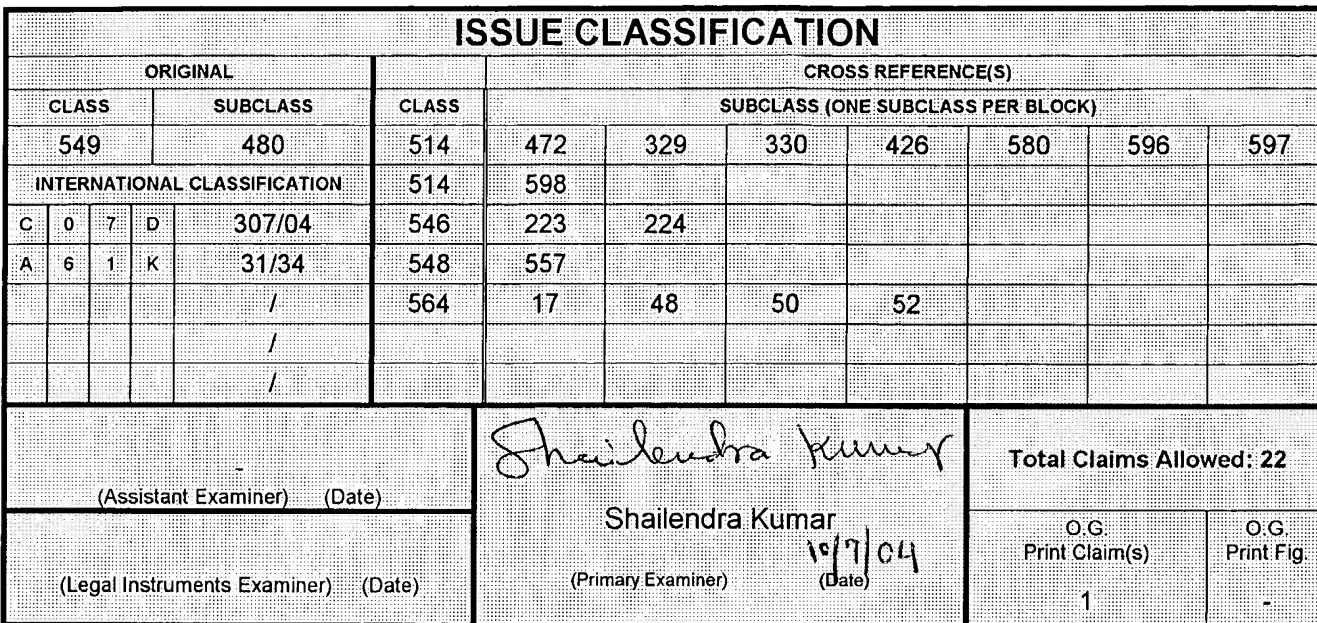 ISSUE CLASSIFICATION
ORIGINAL CROSS REFERENCE(S)
CLASS SUBCLASS CLASS SUBCLASS (ONE SUBCLASS PER BLOCK)
549 480 514 472 329 330 426 580 596 597
INTERNATIONAL CLASSIFICATION 514 598
C 0 7 D 307/04 546 223 224
A 6 1 K 31/34 548 557
/ 564 17 48 50 52
/
/
-
(Assistant Examiner) (Date)
(Legal Instruments Examiner) (Date)
Shailendra Kumar
Shailendra Kumar
10/7/04
(Primary Examiner) (Date)
Total Claims Allowed: 22
O.G. O.G.
Print Claim(s) Print Fig.
1 -